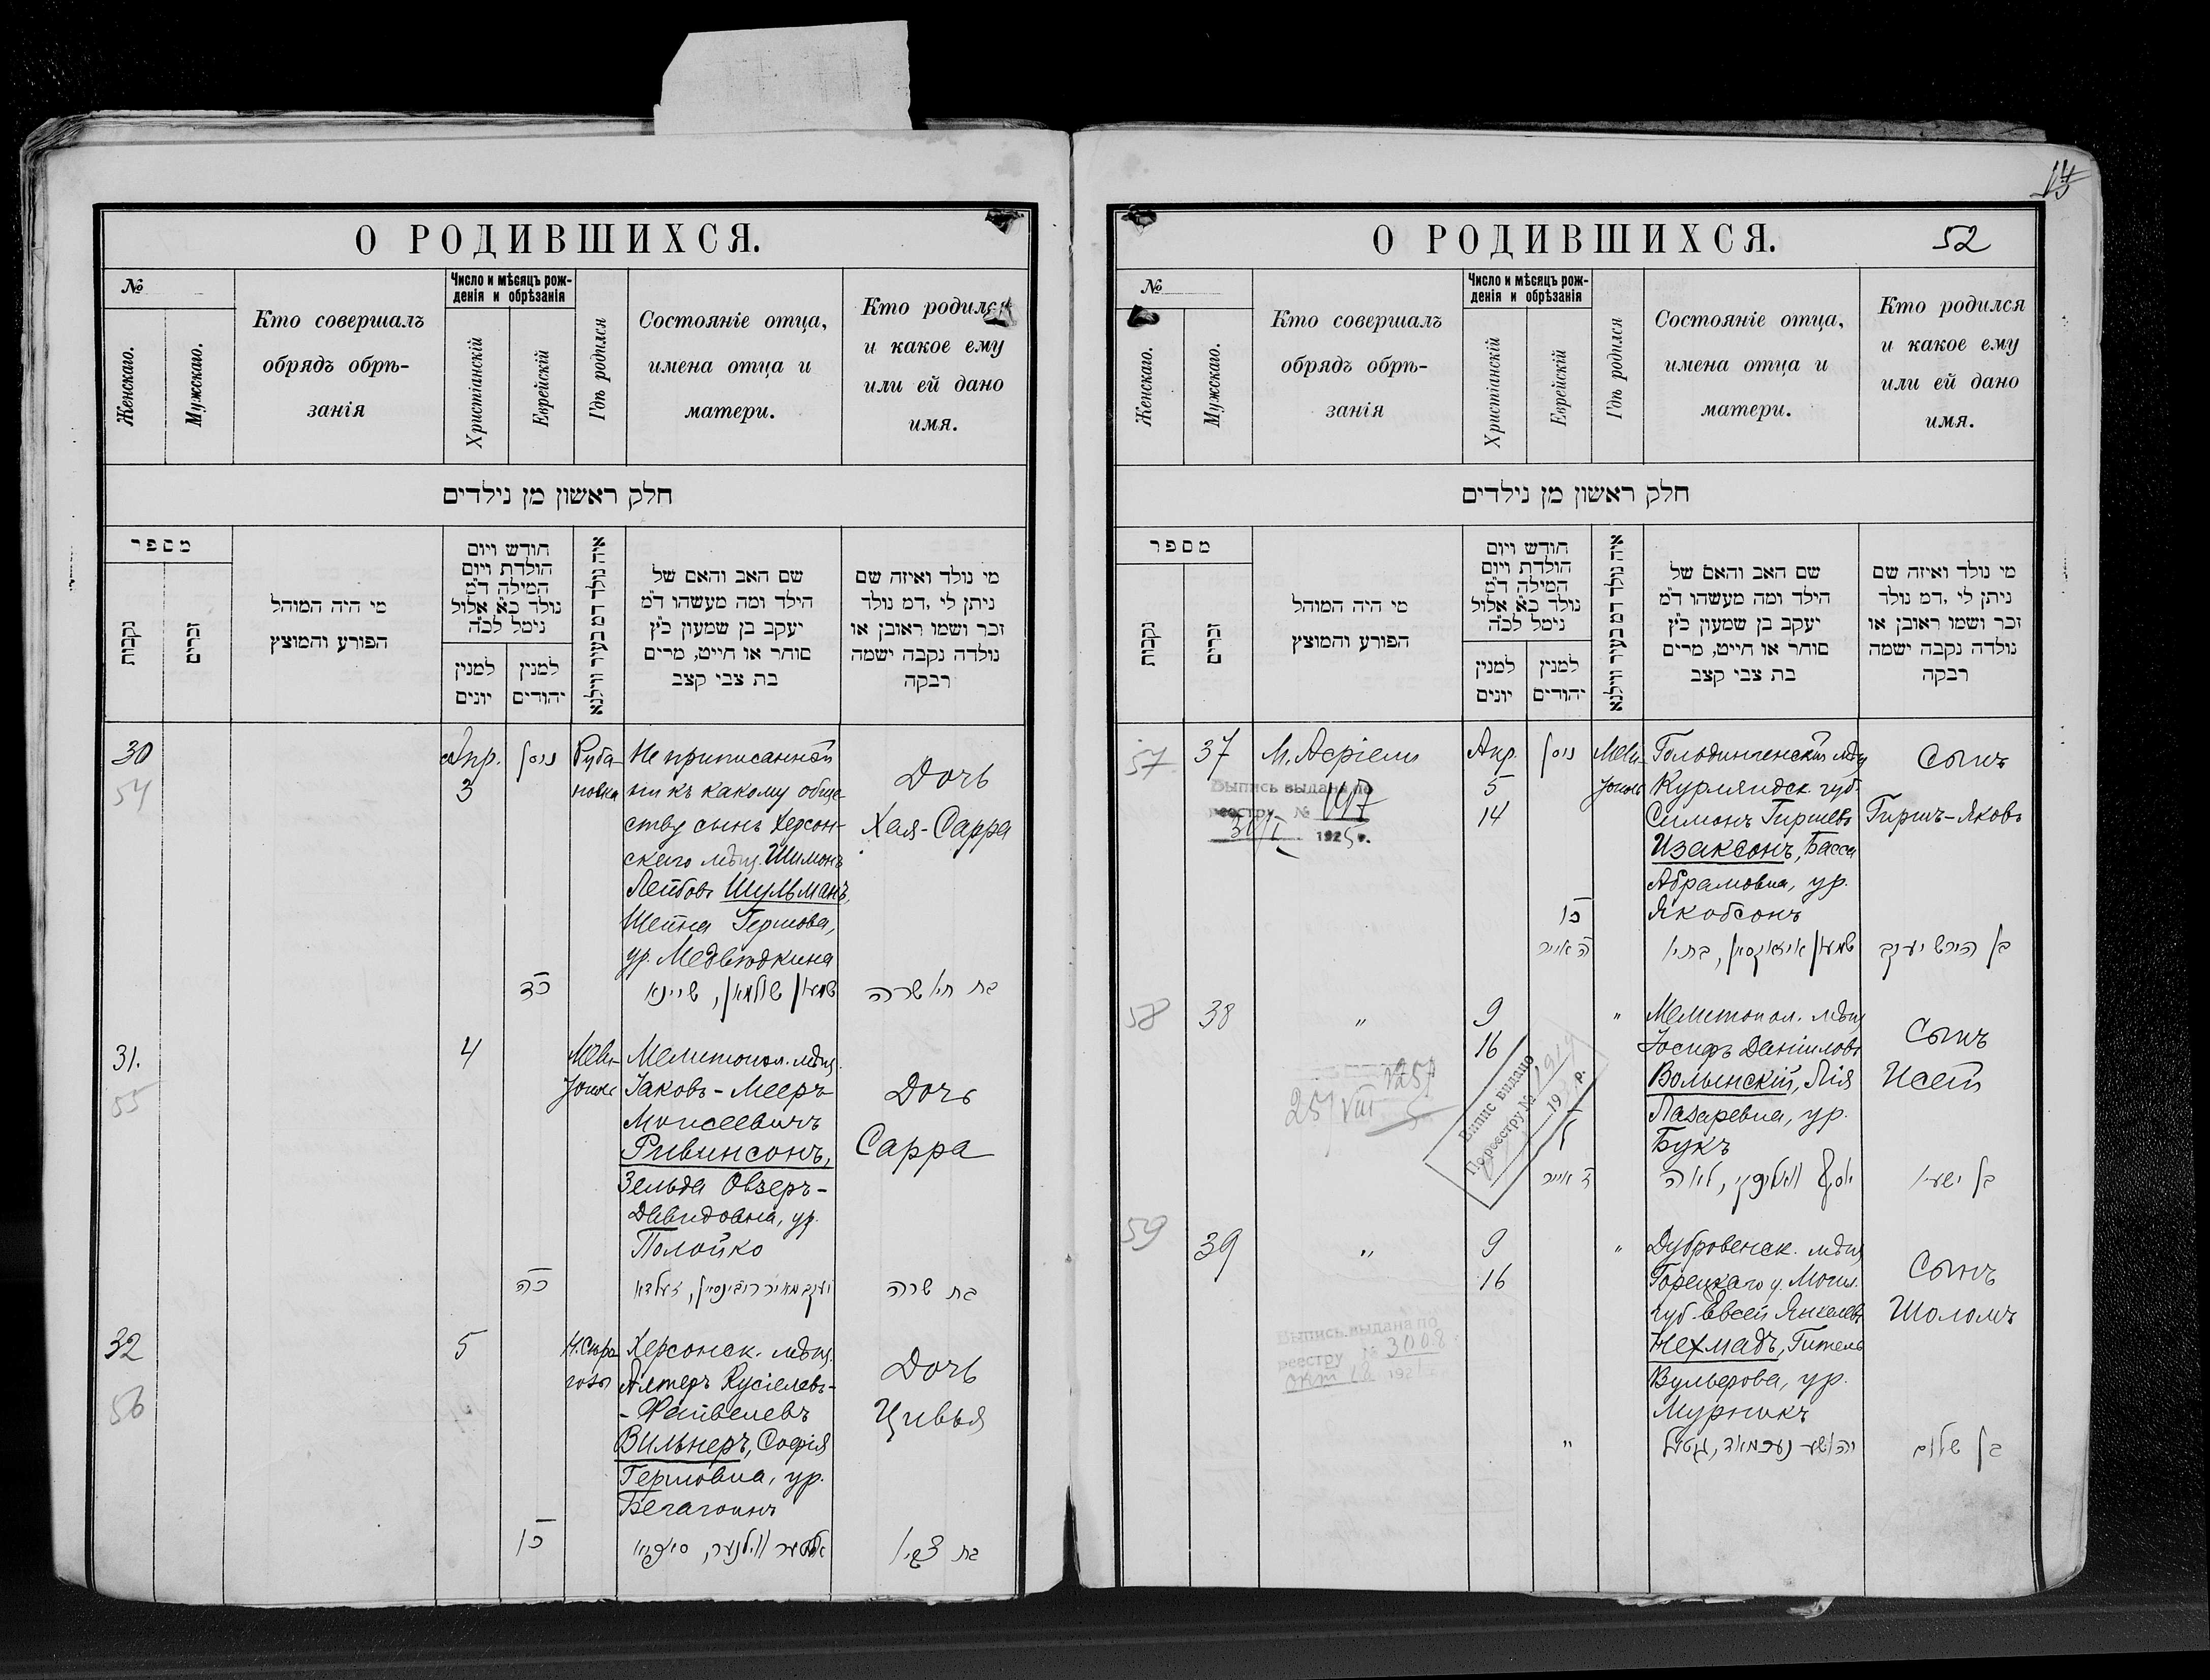 О РОДИВШИХСЯ.
№
Женскаго.
Мужскаго.
Кто совершалъ
обрядъ обрѣ-
занія
Число и мѣсяцъ рож-
денія и обрѣзанія
Христіанскій
Еврейскій
Гдѣ родился
Состояніе отца,
имена отца и
матери.
Кто родился
и какое ему
или ей дано
имя.
חלק ראשון מן נילדים
מספר
נקבות
זכרים
מי היה המוהל
הפורע והמוצץ
חודש ויום
הולדת ויום
המילה ד״מ
נולד כ״א אלול
נימל לכ״ה
למנין
יונים
למנין
יהודים
איה נולד דמ בעיר ווילנא
שם האב והאם של
הילד ומה מעשהו ד״מ
יעקב בן שמעון כ״ץ
סוחר או חייט, מרים
בת צבי קצב
מי נולד ואיזה שם
ניתן לי ,דמ נולד
זכר ושמו ראובן או
נולדה נקבה ישמה
רבקה
30
54
Апр.
3
ניסן
כד
Руба-
новка
Не приписанной
ни къ какому обще-
ству сынъ Херсон-
скаго мѣщ. Шимонъ
Лейбовъ Шульманъ,
Шейна Гершова,
ур. Медвюдкина
שמעון שולמאן, שיינא
Дочь
Хая-Сарра
בת חיא שרה
31.
55
4
כה
Мели-
Мелитопол. мѣщ.
Іаковъ-Мееръ
Моисеевичъ
Ривинсонъ,
Зельда Овзеръ-
Давидовна, ур.
Полойко
יעקב מאיר ריבינסאן, זעלדא
Дочь
Сарра
בת שרה
32
56
5
כו
Н. Сѣро-
гозы
Херсонск. мѣщ.
Алтеръ Кусіелевъ-
-Файвелевъ
Вильнеръ, Софія
Гершовна, ур.
אלטער ווילנער, סאפיא
Дочь
Цивья
בת צביא
О РОДИВШИХСЯ.
52
№
Женскаго.
Мужскаго.
Кто совершалъ
обрядъ обрѣ-
занія
Число и мѣсяцъ рож-
денія и обрѣзанія
Христіанскій
Еврейскій
Гдѣ родился
Состояніе отца,
имена отца и
матери.
Кто родился
и какое ему
или ей дано
имя.
חלק ראשון מן נילדים
מספר
נקבות
זכרים
מי היה המוהל
הפורע והמוצץ
חודש ויום
הולדת ויום
המילה ד״מ
נולד כ״א אלול
נימל לכ״ה
למנין
יונים
למנין
יהודים
איה נולד דמ בעיר ווילנא
שם האב והאם של
הילד ומה מעשהו ד״מ
יעקב בן שמעון כ״ץ
סוחר או חייט, מרים
בת צבי קצב
מי נולד ואיזה שם
ניתן לי ,דמ נולד
זכר ושמו ראובן או
נולדה נקבה ישמה
רבקה
57
37
М. Асріели
Выпись выдана по
реестру №
1925 г.
Апр.
5
14
ניסן
כו
ה אייר
Мели-
Гольдингенскій мѣщ.
Курляндск. губ.
Симонъ Гиршевъ
Изаксонъ, Басса
Абрамовна, ур.
Якобсонъ
שמעון איזאקסאן, בתיא
Сынъ
Гиршъ-Яковъ
בן הירש יעקב
58
38
"
9
16
Випис видано
По реестру №
19 р.
"
Мелитопол. мѣщ.
Іосифъ Даниловъ
Волынскій, Лія
Лазаревна, ур.
Букъ
Сынъ
Исай
בן ישעיא
59
39
"
Выпись выдана по
реестру № 3008
окт 18 192
9
16
"
"
Дубровенск. мѣщ.
Горецкаго у. Могил.
губ. Евсей Янкелевъ
Нехмадъ, Гитель
Вульфова, ур.
Мурникъ
יהושע נעכמאד, גיטל
Сынъ
Шоломъ
בן שלום